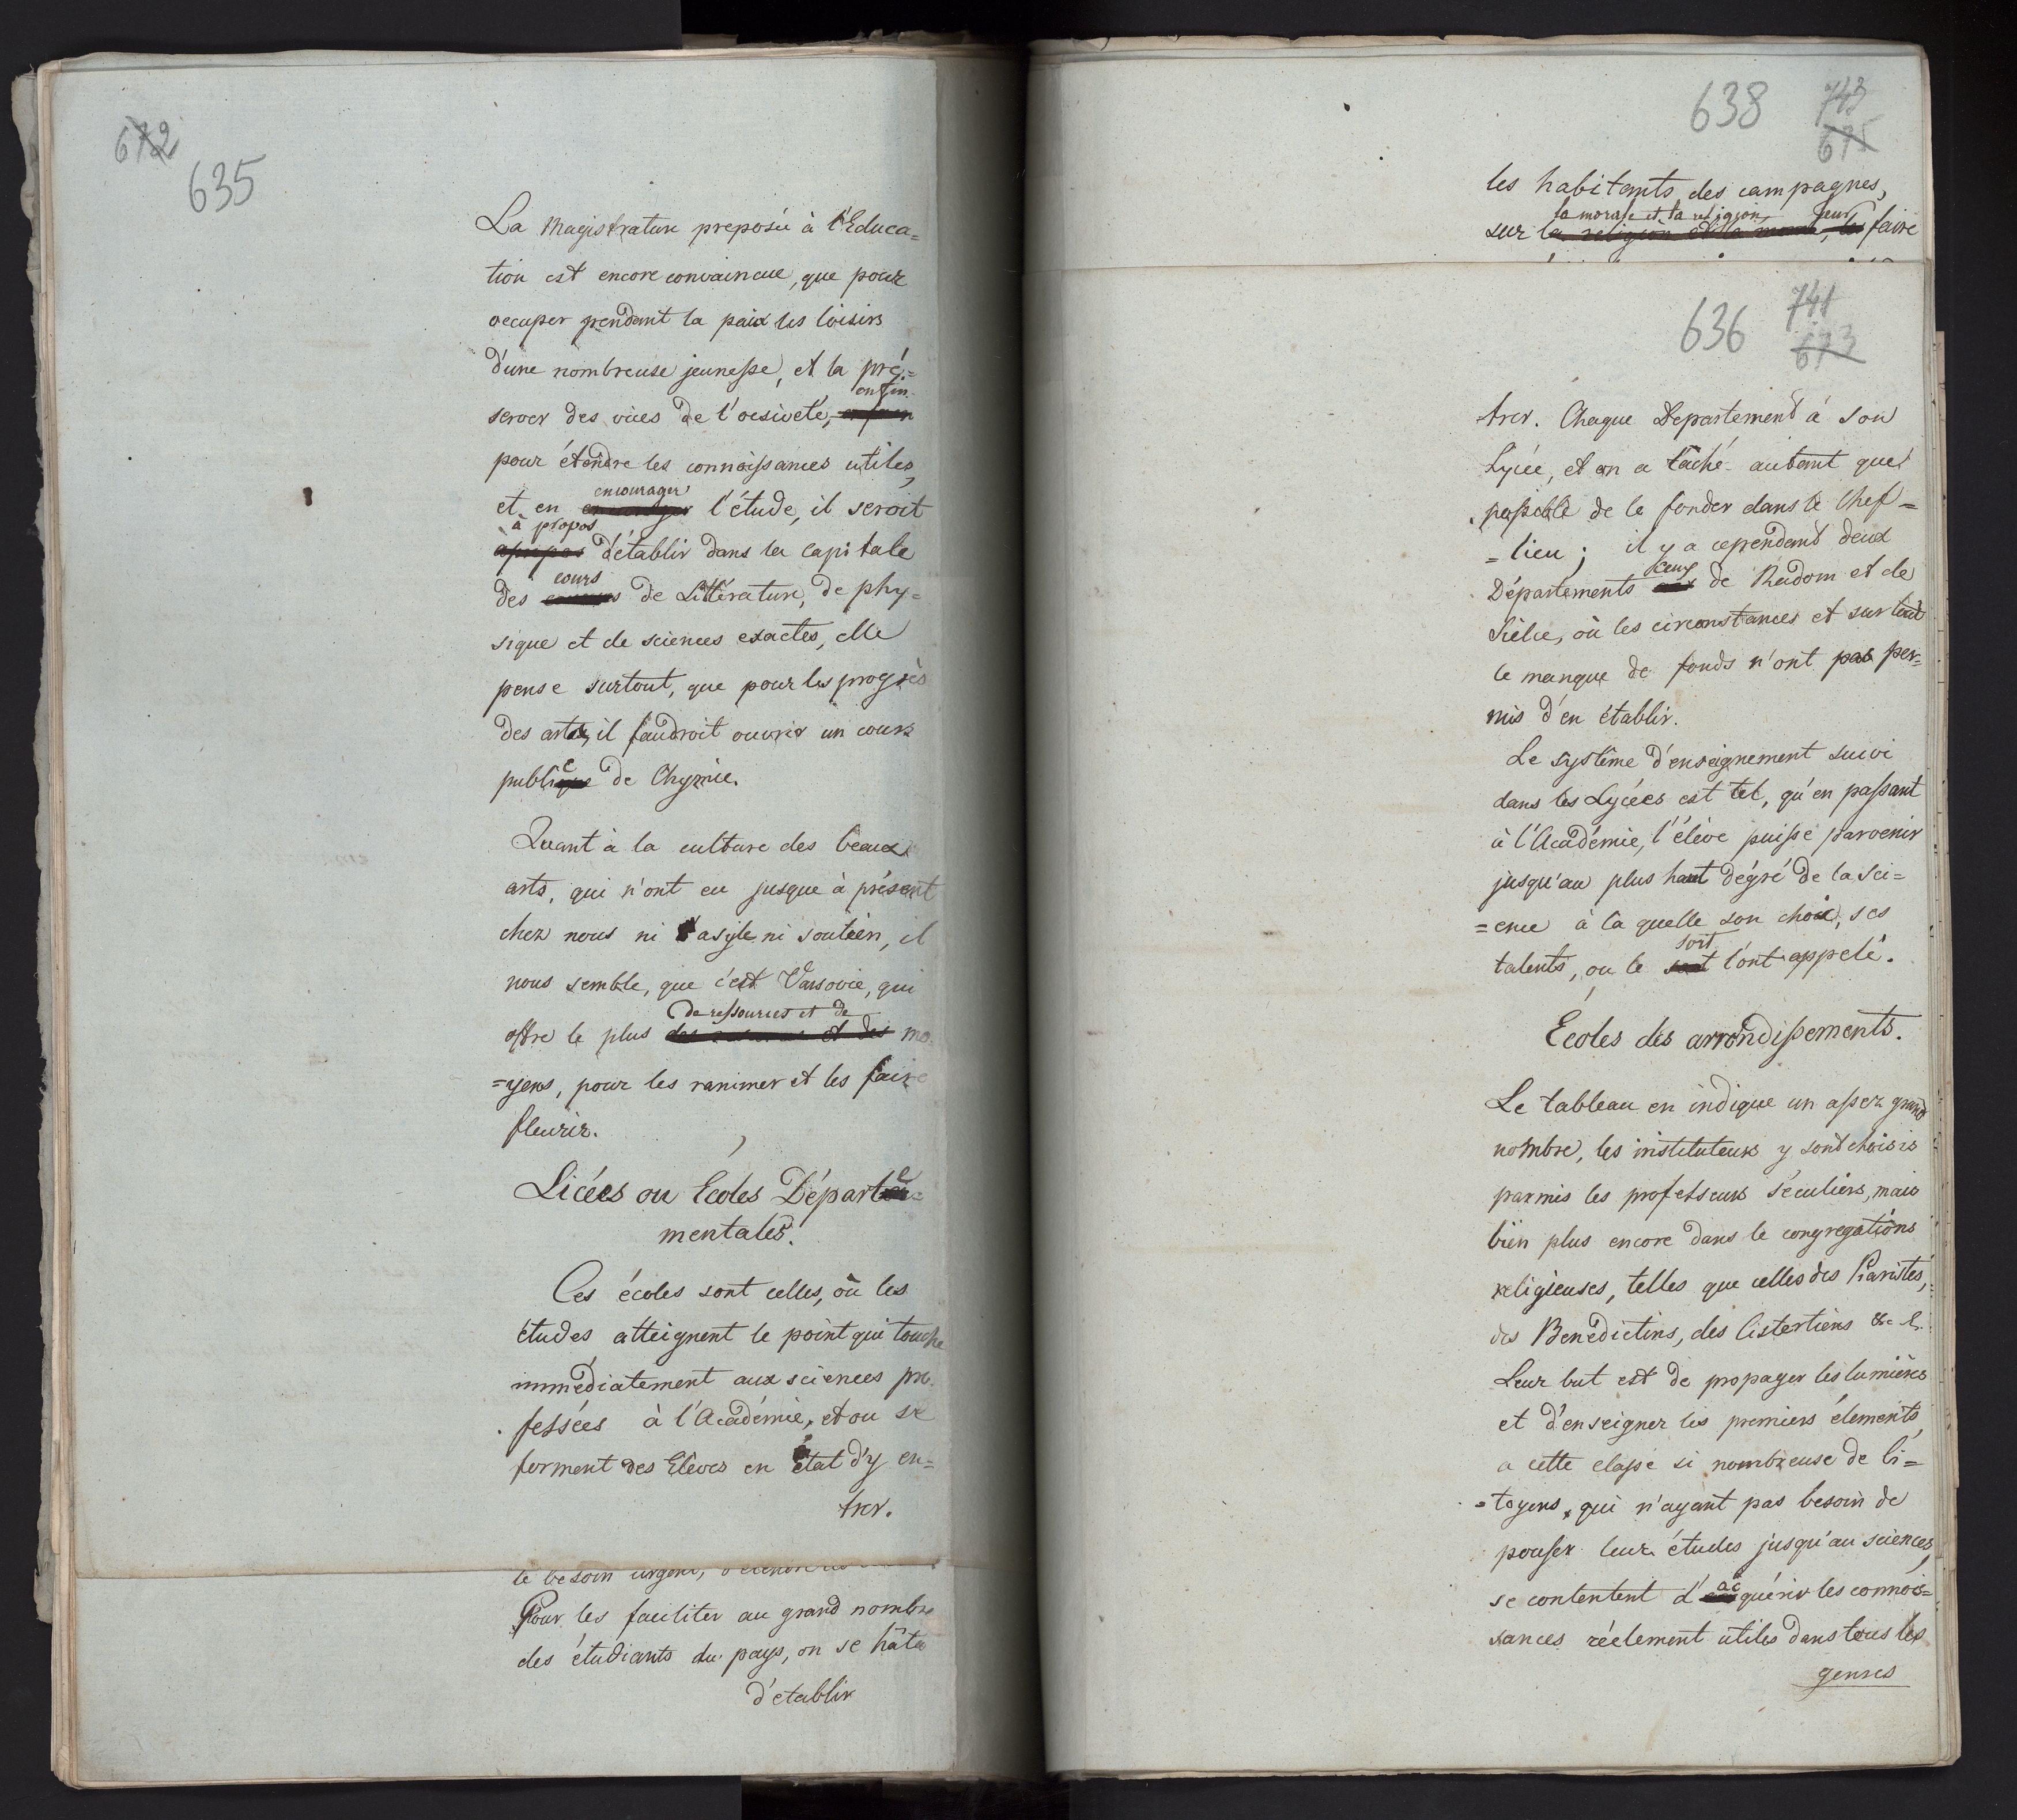 672
635
La Magistrature preposée à l'Educa=
tion est encore convaincue, que pour
occuper pendant la paix les loisirs
d'une nombreuse jeunesse, et la pré=
enfin
server des vices de l'oesiveté,
pour étendre les connaissances utiles,
encourager
et en l'étude, il seroit
à propos
d'établir dans la capitale
cours
des de Littérature, de phy=
sique et de sciences exactes, elle
pense surtout, que pour les progrès
des arts, il faudroit ouvrir un cours
public de Chymie.
Quant à la culture des beaux
arts, qui n'ont eu jusque à présent
chez nous ni asyle ni soutien, il
nous semble, que c'est Varsovie, qui
de ressources et de
offre le plus des et des mo
=yens, pour les ranimer et les faire
fleurir.
Licées ou Ecoles Départe=
mentales.
Ces écoles sont celles, où les
études atteignent le point qui touche
immédiatement aux sciences pro
fessées à l'Académie, et ou se
forment des Elèves en état d'y en=
trer.
le besoin urgent,
Pour les faciliter au grand nombre
des étudiants du pays, on se hâta
d'etablir
638 743
675
les habitants des campagnes,
la morale et la religion, leur
sur la religion et la morale, les faire
636 741
673
trer. Chaque Departement à son
Lycée, et on a taché autant que
possible de le fonder dans le Chef=
=lieu; il y a cependant deux
ceux
Départements de Radom et de
Siélce, où les circonstances et surtout
le manque de fonds n'ont pas per=
mis d'en établir.
Le système d'enseignement suivi
dans les Lycées est tel, qu'en passant
à l'Académie, l'élève puisse parvenir
jusqu'au plus haut dégré de la sci=
=ence à la quelle son choix, ses
soit
talents, ou le sort l'ont appelé.
Écoles des arrondissements.
Le tableau en indique un assez grand
nombre, les instituteurs y sont choisis
parmis les professeurs séculiers, mais
bien plus encore dans le congregations
religieuses, telles que celles des Piaristes,
des Benedictins, des Cistertiens &c &.
Leur but est de propager les lumières
et d'enseigner les premiers élements,
a cette classe si nombreuse de Ci=
=toyens, qui n'ayant pas besoin de
pousser leurs études jusqu'au sciences,
se contentent d'acquérir les connois=
sances réelement utiles dans tous les
genres